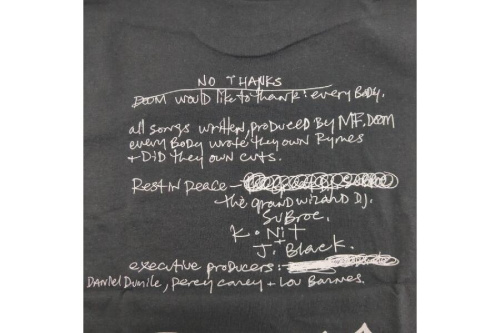 NO THANKS
DOOM would like to thank: every BoDy.
all songs written, produced By MF. DOOM
every BoDy wrote they own Rymes
+ DiD they own cuts.
Rest in peace -
the grand wizard DJ.
SuBroc.
K. Nit
+
J. Black.
executive producers:
Daniel Dumile, percy carey + Lou Barnes.